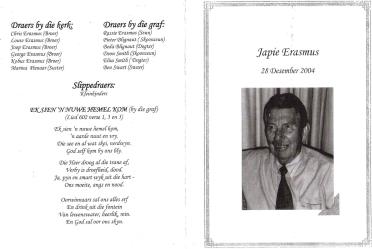 Draers by die kerk:
Chris Erasmus (Broer)
Louis Erasmus (Broer)
Joep Erasmus (Broer)
George Erasmus (Broer)
Kobus Erasmus (Broer)
Marina Pienaar (Suster)
Draers by die graf:
Rassie Erasmus (Seun)
Pieter Blignaut (Skoonseun)
Beda Blignaut (Dogter)
Deon Smith (Skoonseun)
Elisa Smith (Dogter)
Ben Stuart (Swaer)
Slippedraers:
Kleinkinders
EK SIEN 'N NUWE HEMEL KOM (by die graf)
(Lied 602 verse 1, 3 en 5)
Ek sien 'n nuwe hemel kom,
'n aarde nuut en vry.
Die see en al wat skei, verdwyn.
God self kom by ons bly.
Die Heer droog al die trane af,
Verby is droefheid, dood.
Ja, pyn en smart wyk uit die hart -
Ons moeite, angs en nood.
Oorwinnaars sal ons alles erf
En drink uit die fontein
Van lewenswater, heerlik, rein.
En God sal oor ons skyn.
Japie Erasmus
28 Desember 2004